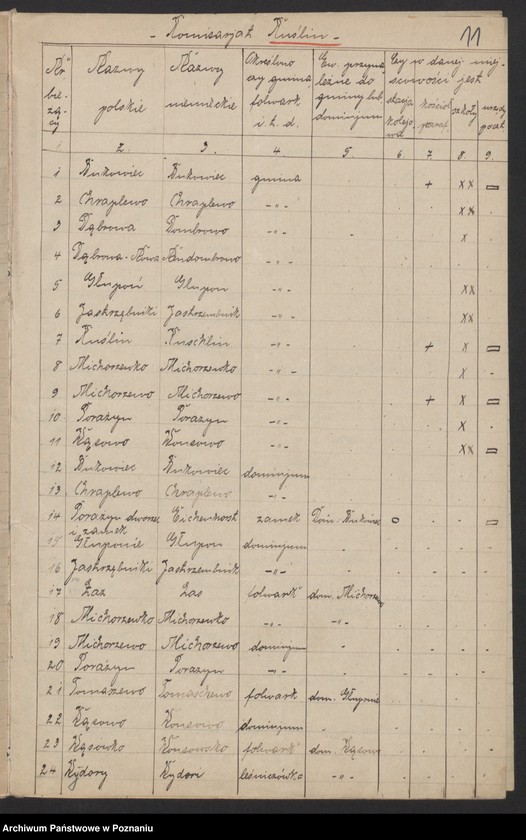 - Komisarjat Kuślin - 11
Nr bieżący | Nazwy polskie | Nazwy niemieckie | Określono czy gmina folwark i t. d. | Ew. przynależne do gminy lub dominjum | Czy w danej miejscowości jest
stacja kolejowa | kościół paraf. | szkoły | urząd poczt.
2. 3. 4 5. 6. 7. 8. 9.
1 Bukowiec Bukowiec gmina + xx
2 Chraplewo Chraplewo -"- xx
3 Dąbrowa Dombrowo -"- x
4 Dąbrowa-Nowa Neudombrowo -"-
5 Głuponie Glupon -"- xx
6 Jastrzębniki Jastrzembnik -"- xx
7 Kuślin Kuschlin -"- + x
8 Michorzewko Michorzewko -"- x
9 Michorzewo Michorzewo -"- + x
10 Porażyn Porażyn -"- x
11 Wąsowo Wonsowo -"- xx
12 Bukowiec Bukowiec dominjum
13 Chraplewo Chraplewo -"-
14 Porażyn dworzec Eichenhorst zamek Dom. Bukowiec
i zamek
15 Głuponie Glupon dominjum
16 Jastrzębniki Jastrzembnik -"-
17 Łaz Łas folwark dom. Michorzewo
18 Michorzewko Michorzewko -"- -"-
19 Michorzewo Michorzewo dominjum
20 Porażyn Porażyn -"-
21 Tomaszewo Tomaschewo folwark dom. Głuponie
22 Wąsowo Wonsowo dominjum
23 Wąsówko Wonsowko folwark dom. Wąsowo
24 Wydory Wydori leśniczówka -"-
Archiwum Państwowe w Poznaniu szukajwarchiwach.gov.pl